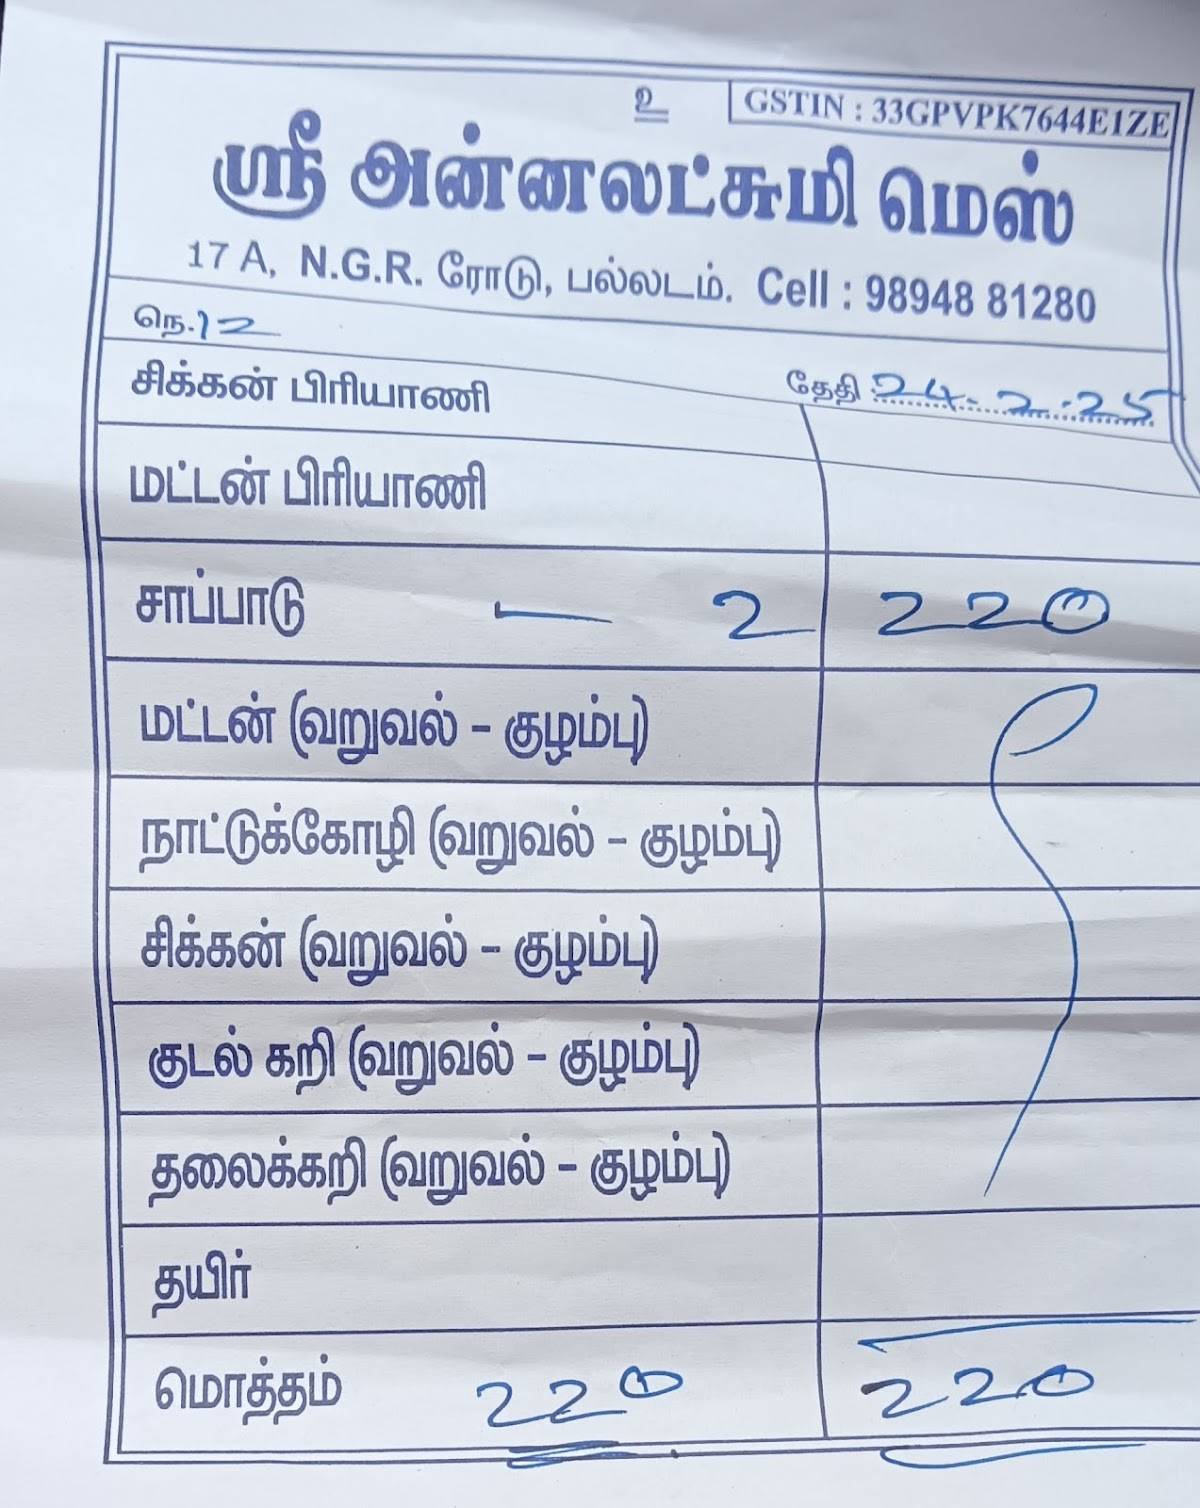 உ
GSTIN : 33GPVPK7644E1ZE
ஸ்ரீ அன்னலட்சுமி மெஸ்
17 A, N.G.R. ரோடு, பல்லடம். Cell : 98948 81280
நெ.12
தேதி 24-2-25
சிக்கன் பிரியாணி
மட்டன் பிரியாணி
சாப்பாடு — 2 220
மட்டன் (வறுவல் - குழம்பு)
நாட்டுக்கோழி (வறுவல் - குழம்பு)
சிக்கன் (வறுவல் - குழம்பு)
குடல் கறி (வறுவல் - குழம்பு)
தலைக்கறி (வறுவல் - குழம்பு)
தயிர்
மொத்தம் 220 220